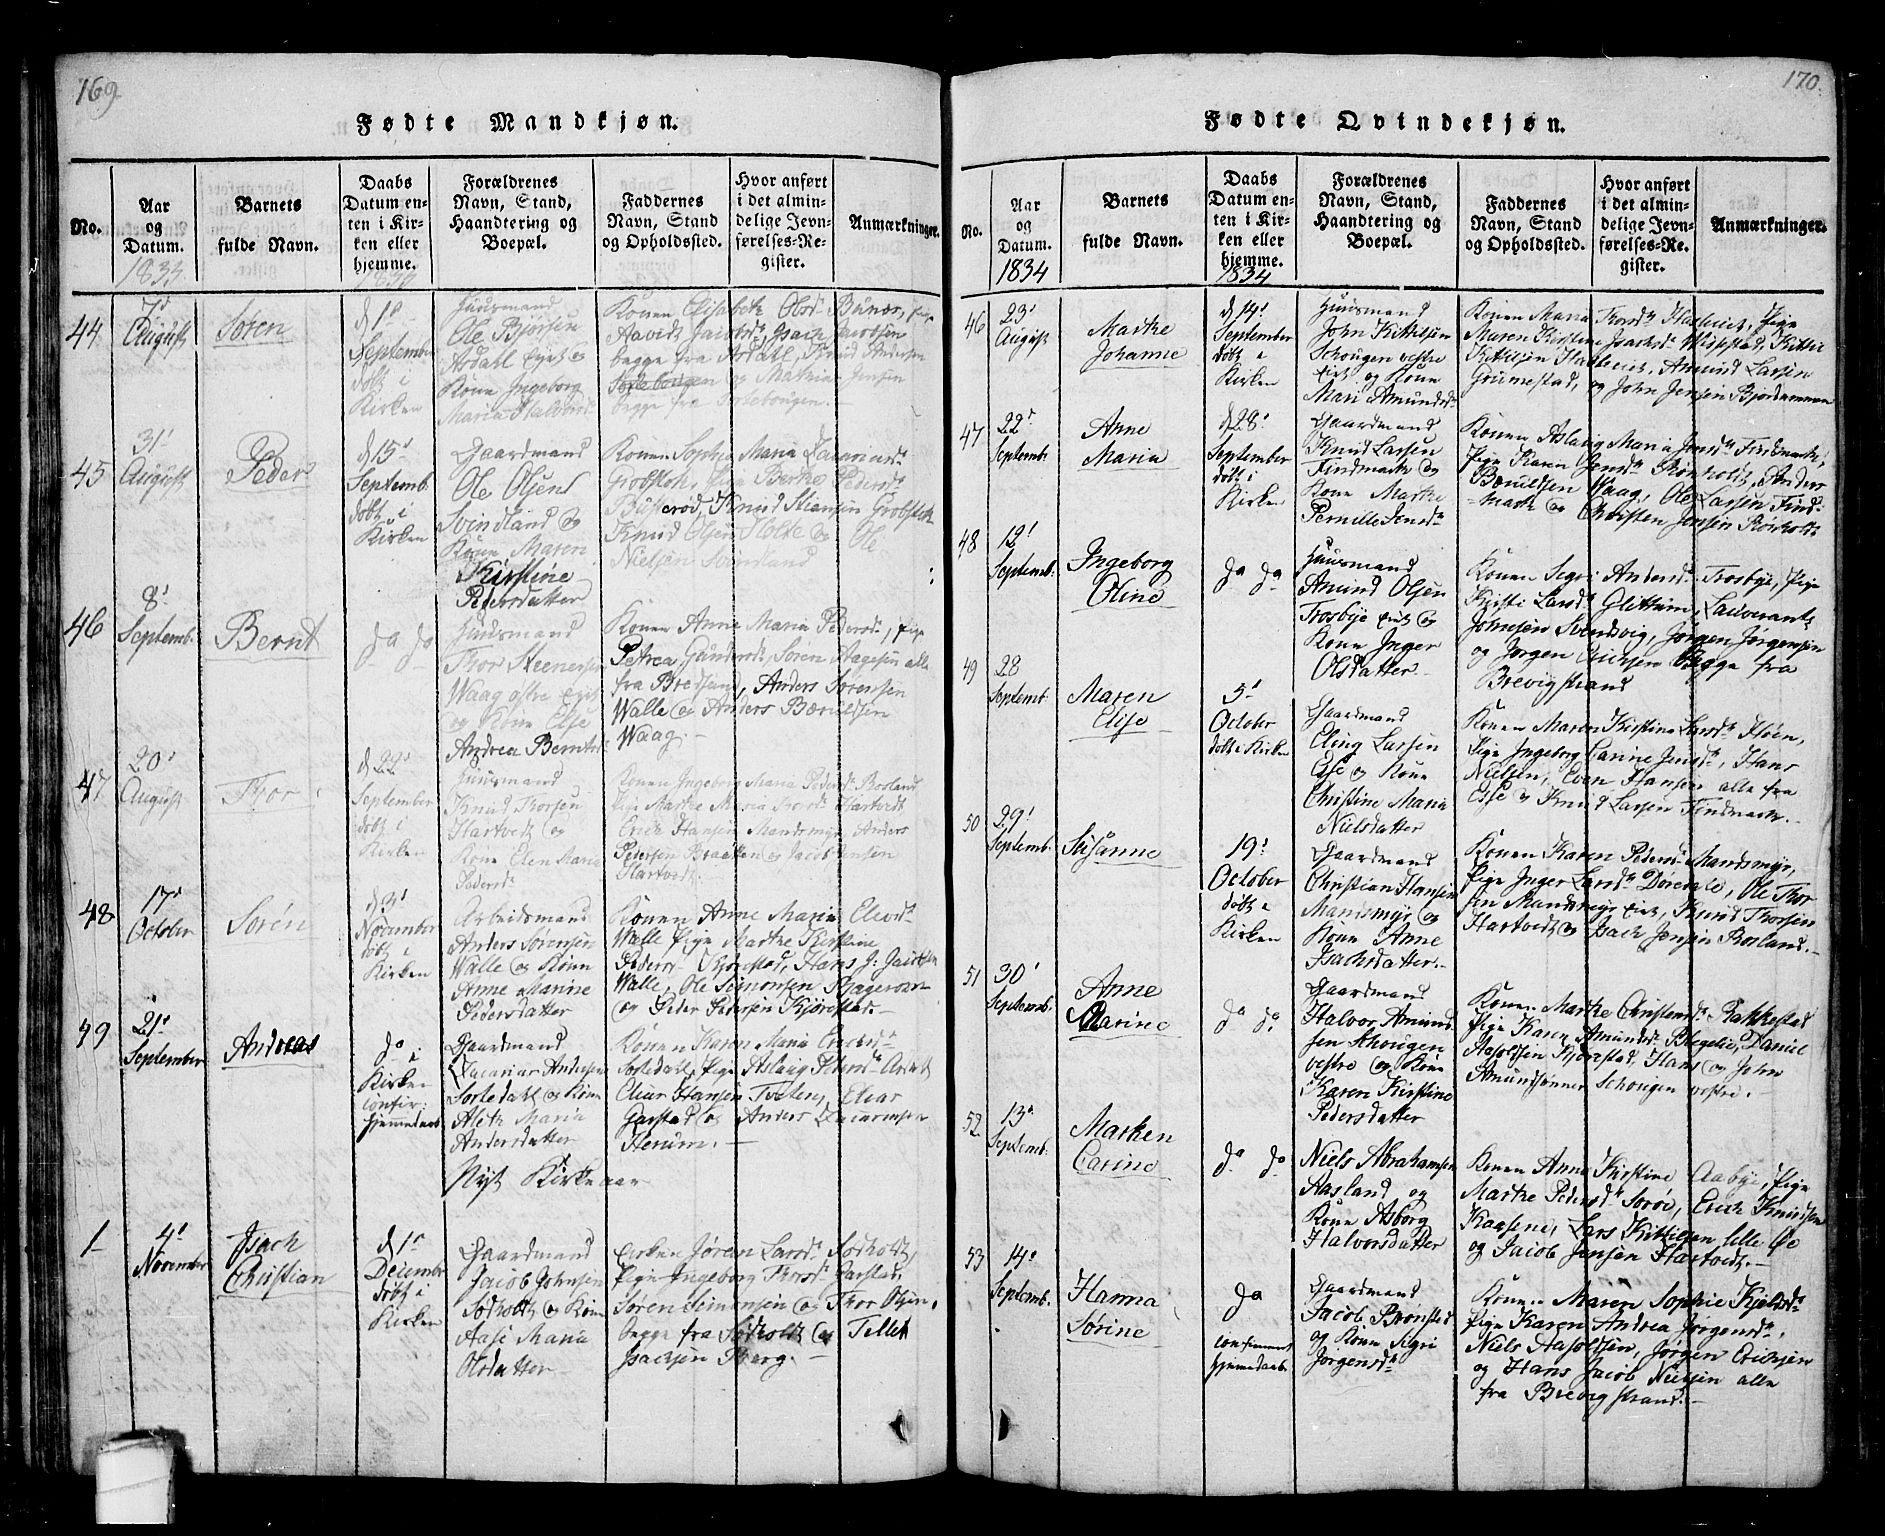 169
Fødte Mandkjøn.
No.
Aar
og
Datum.
1834
Barnets
fulde Navn.
Daabs
Datum en-
ten i Kir-
ken eller
hjemme.
1834
Forældrenes
Navn, Stand,
Haandtering og
Boepæl.
Faddernes
Navn, Stand
og Opholdssted.
Hvor anført
i det almin-
delige Jevn-
førelses-Re-
gister.
Anmærkninger.
44
7d
August
Søren
d 1d
September
døbt i
Kirken
Huusmand
Ole
Asdahl Eiet og
Kone Ingeborg
Maria Halvorsd.
Konen Elisabeth Olsd.
begge fra Asdahl, Knud Andersen
og Mathias Jensen
begge fra
45
31d
August
Peder
d 15d
Septemb.
døbt i
Kirken
Gaardmand
Ole Olsen
Svindland og
Kone Maren
Kirstine
Pedersdatter
Konen Sophie Maria
Pige Berthe Pedersd.
Knud Stiansen
Knud Olsen Holte og Ole
Nielsen Svindland
46
8d
Septemb.
Bernt
da do
Huusmand
Thor Steenersen
Waag østre Eiet
og Kone Else
Andrea Berntsd.
Konen Anne Maria Pedersd., Pige
Petrea Gundersd., Søren Aagesen alle
fra Bredsand, Anders Sørensen
Walle og Anders
Waag.
47
20d
August
Thor
d 22d
September
døbt i
Kirken
Huusmand
Knud Thorsen
Hartvedt og
Kone Elen Maria
Pedersd.
Konen Ingeborg Maria Pedersd. Rosland
Pige Marthe Maria Thorsd. Hartvedt
Erich Hansen Mandsmyr, Anders
Pedersen Braaten og Jacob Jensen
Hartvedt.
48
17d
October
Søren
d 3d
November
døbt i
Kirken
Arbeidsmand
Anders Sørensen
Walle og Kone
Anne Marine
Pedersdatter
Konen Anne Maria
Walle Pige Marthe Kirstine
Pedersd. Kjørestad, Hans J. Jacobsen
Walle, Ole Simonsen
og Peder Pedersen Kjørestad.
49
21d
September
Andreas
da i
Kirken
confir:
hjemmedaab
Gaardmand
Zacarias Andersen
Sortedahl og Kone
Aleth Maria
Andersdatter
Konen Karen Maria
Sortedahl, Pige Aslaug Petersd.
Hansen Tveten,
Garstad og Anders
Herum.
Nyt Kirkeaar
1
4d
November
Isach
Christian
d 1d
December
døbt i
Kirken
Gaardmand
Jacob Johnsen
Sodholt og Kone
Aase Maria
Olsdatter
Enken Jøran Larsd. Sodholt,
Pige Ingeborg Thorsd. Garstad,
Søren Simonsen og Thor Olsen,
begge fra Sodholt og Tellef
Isachsen Berg.
170
Fødte Qvindekjøn.
No.
Aar
og
Datum.
1834
Barnets
fulde Navn.
Daabs
Datum en-
ten i Kir-
ken eller
hjemme.
1834
Forældrenes
Navn, Stand,
Haandtering og
Boepæl.
Faddernes
Navn, Stand
og Opholdssted.
Hvor anført
i det almin-
delige Jevn-
førelses-Re-
gister.
Anmærkninger.
46
23d
August
Marthe
Johanne
d 14d
September
døbt i
Kirken
Huusmand
John Kittilsen
Schougen vestre
Eiet og Kone
Mari Amundsd.
Konen Maria Thorsd. Pige
Maren Kirstine Isachsd. Kittil
Kittilsen Amund Larsen
Grumestad, og John Jensen Bjordammen
47
22d
Septemb.
Anne
Maria
d 28d
September
døbt i
Kirken
Gaardmand
Knud Larsen
Findmark og
Kone Marthe
Pernille Jensd.
Konen Aslaug Maria Jensd. Findmark,
Pige Karen Jensd. Rørholt, Anders
Waag, Ole Larsen Find-
mark og Christen Jensen Rørholt
48
12d
Septemb.
Ingeborg
Oline
da da
Huusmand
Amund Olsen
Trosbye Eiet og
Kone Inger
Olsdatter
Konen Segri Andersd. Trosbye, Pige
Kirsti Larsd. Glittum,
Johnsen Svendsvig, Jørgen Jørgensen
og Jørgen Erichsen begge fra
Brevigstrand
49
28
Septemb.
Maren
Elise
5d
October
døbt i Kirken
Gaardmand
Eling Larsen
Esse og Kone
Christine Maria
Nielsdatter
Konen Maren Kirstine Larsd. Høen,
Pige Ingeborg Jensd., Hans
Nielsen, Even Hansen alle fra
Esse og Knud Larsen Findmark.
50
29d
Septemb.
Susanne
19d
October
døbt i
Kirken
Gaardmand
Christian Hansen
Mandsmyr og
Kone Anne
Isachsdatter.
Konen Karen Pedersd. Mandsmyr,
Pige Inger Larsd. Dørdale, Ole Thor-
sen Mandsmyr Eiet, Knud Thorsen
Hartvedt og Isach Jensen Rosland.
51
30d
Septemb.
Anne
Marine
da da
Gaardmand
Halvor Amund-
sen Schougen
vestre og Kone
Karen Kirstine
Pedersdatter
Konen Marthe Christensd. Bakkestad
Pige Karen Amundsd. Daniel
Aasoldsen Kjørestad, Hans og John
Amundsønner Schougen vestre.
52
13d
Septemb.
Marthen
Carine
da da
Niels Abrahamsen
Aasland og
Kone Asborg
Halvorsdatter
Konen Anne Kirstine Aabye, Pige
Marthe Pedersd. Erich Knudsen
Kaasene, Lars Kittilsen lille Øe
og Jacob Jensen Hartvedt.
53
14d
Septemb.
Hanna
Sørine
da
confirmert
hjemmedaab
Gaardmand
Jacob Brønstad
og Kone Sigri
Jørgensd.
Konen Maren Sophie Kjeldsd.
Pige Karen Andrea Jørgensd.,
Niels Aasoldsen, Jørgen Erichsen
og Hans Jacob Nielsen alle
fra Brevigstrand.